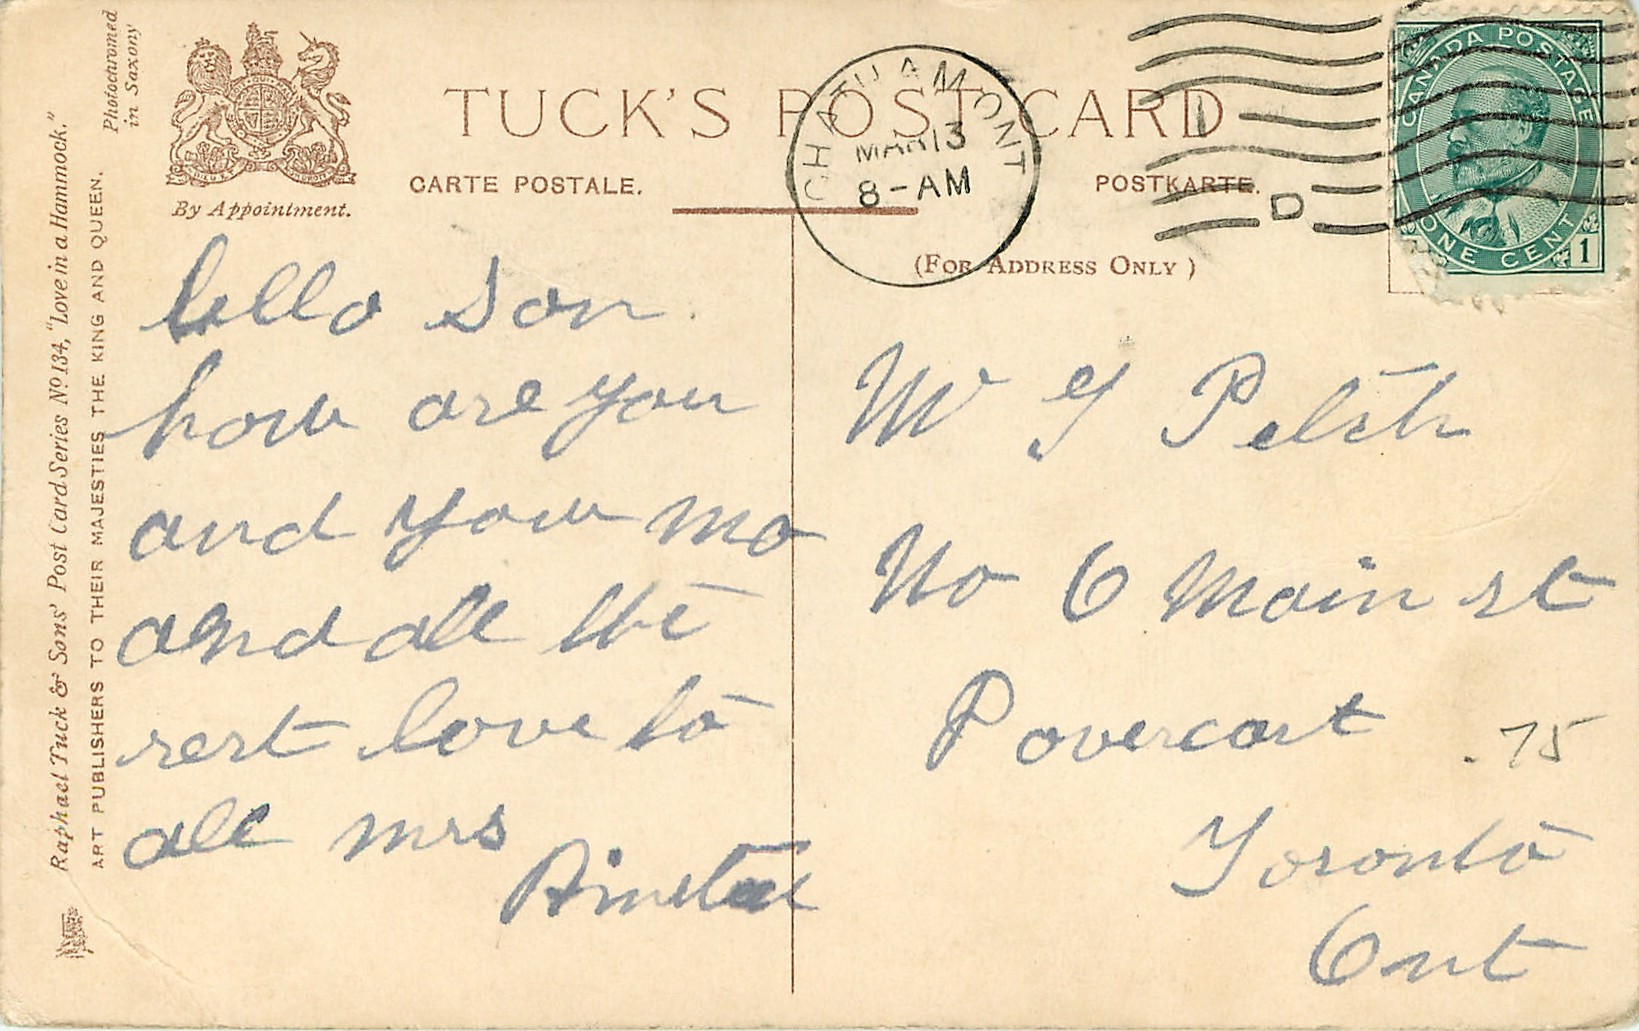 Photochromed
in Saxony
Raphael Tuck & Sons' Post Card Series No 134, "Love in a Hammock."
ART PUBLISHERS TO THEIR MAJESTIES THE KING AND QUEEN.
By Appointment.
TUCK'S POST CARD
CARTE POSTALE.
POSTKARTE.
(FOR ADDRESS ONLY)
CHATHAM ONT
MAR 13
8-AM
D
CANADA POSTAGE
ONE CENT
1
hello Son
how are you
and your ma
and all the
rest love to
all mrs
Mr
No 6 Main st
Povercourt
.75
Toronto
Ont